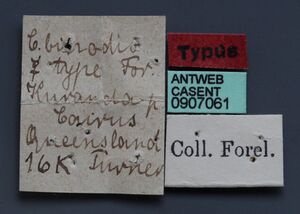 C. biroi
☿ type For.
Kuranda p.
Cairns
Queensland
16K Turner
Typus
ANTWEB
CASENT
0907061
Coll. Forel.